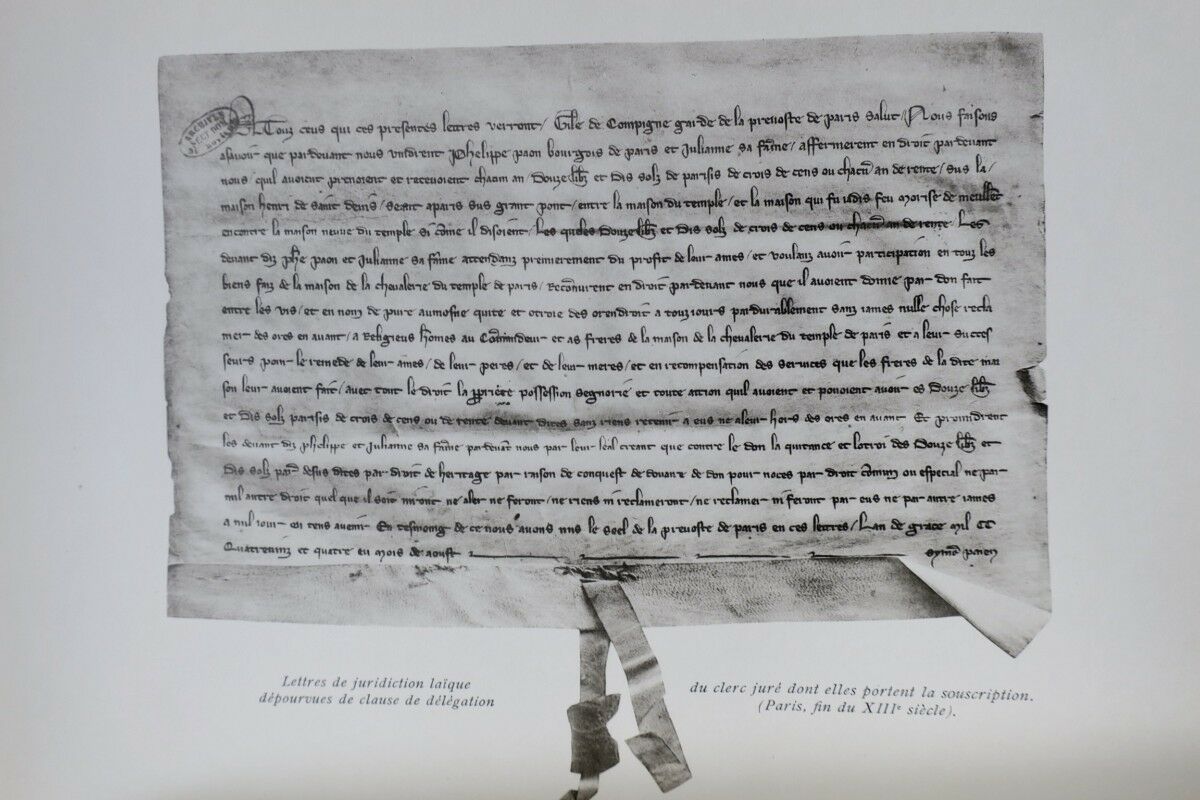 A Touz ceus qui ces presentes lettres verront / Gile de Compigne garde de la prevoste de paris salut / Nous faisons
asavoir que pardevant nous vindrent Phelippe paon bourgois de paris et Julianne sa fame / affermerent en droit pardevant
nous quil avoient prenoient et recevoient chacun an / Douze lib et dis solz de parisis de crois de cens ou chacun an de rente / sus la /
maison henri de saint denis / seant aparis sus grant pont / entre la maison du temple / et la maison qui fu iadis feu morise de
encontre la maison neuve du temple si come il disoient / Les queles Douze lib et dis solz de crois de cens ou chacun an de rente / Les
devant diz phe paon et Julianne sa fame attendanz premierement du profit de leur ames / et voulanz avoir participation en touz les
biens faiz de la maison de la chevalerie du temple de paris / Reconurent en droit pardevant nous que il avoient donne par don fait
entre les vis / et en nom de pure aumosne quite et otroie des orendroit a touziours pardurablement sanz iames nulle chose recla
mer des ores en avant / a Religieus homes au Comandeur et as freres de la maison de la chevalerie du temple de paris et a leur succes
seurs pour le remede de leur ames / de leur peres / et de leur meres / et en recompensation des services que les freres de la dite mai
son leur avoient fait / avec tout le droit la propriete possession segnorie et toute action quil avoient et pouoient avoir es Douze lib
et dis solz parisis de crois de cens ou de rente devant dites sanz riens retenir a eus ne aleur hoirs des ores en avant Et promidrent
les devant diz phelippe et Julianne sa fame pardevant nous par leur leal creant que contre le don la quitance et lotroi des Douze lib et
dis solz par desus dites par droit de heritage par raison de conquest de douaire de don pour noces par droit comun ou especial ne par
nul autre droit quel que il soit niront ne aler ne feront / ne riens ni reclameront / ne reclamer ni feront par eus ne par autre iames
a nul iour en tens avenir En tesmoing de ce nous avons mis le seel de la prevoste de paris en ces lettres / Lan de grace mil CC
Quatrevinz et quatre eu mois de aoust
symon paien
Lettres de juridiction laïque
dépourvues de clause de délégation
du clerc juré dont elles portent la souscription.
(Paris, fin du XIIIe siècle).